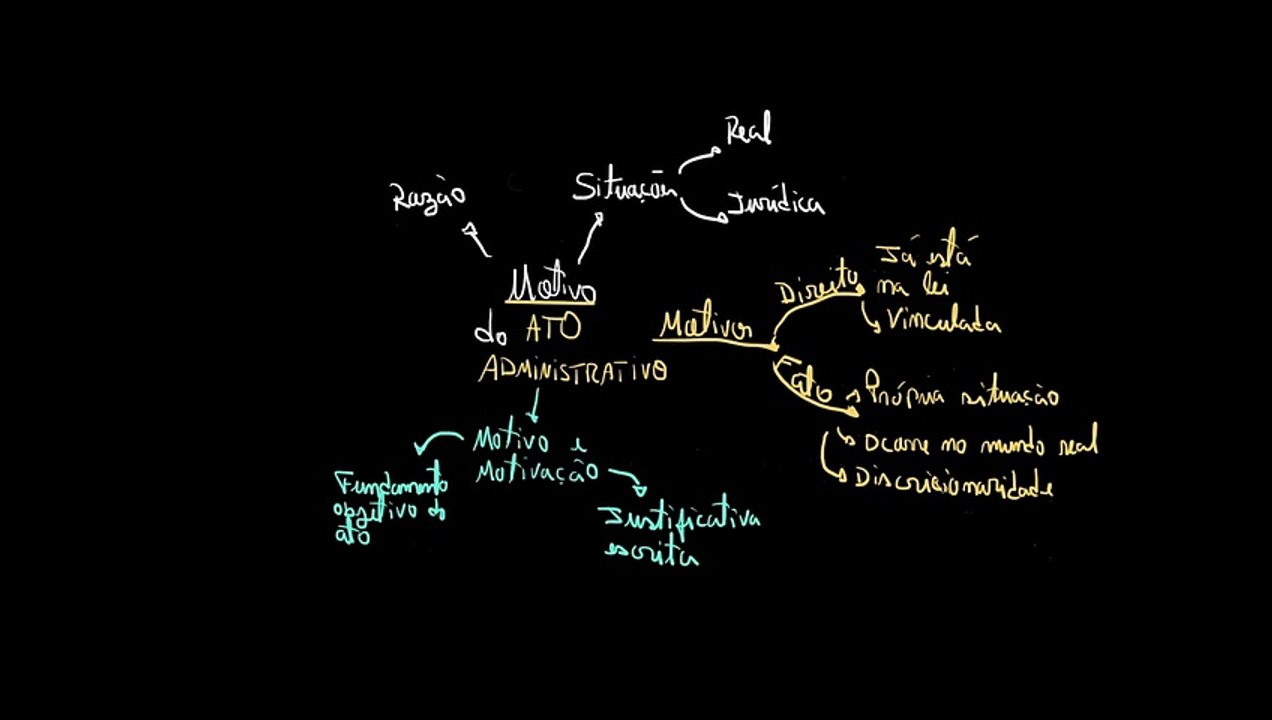 Real
Razão
Situação
Jurídica
Motivo
do ATO
ADMINISTRATIVO
Motivos
Direito
Já está
na lei
Vinculada
Fato
Própria situação
Ocorre no mundo real
Discricionaridade
Motivo e
Motivação
Fundamento
objetivo do
ato
Justificativa
escrita